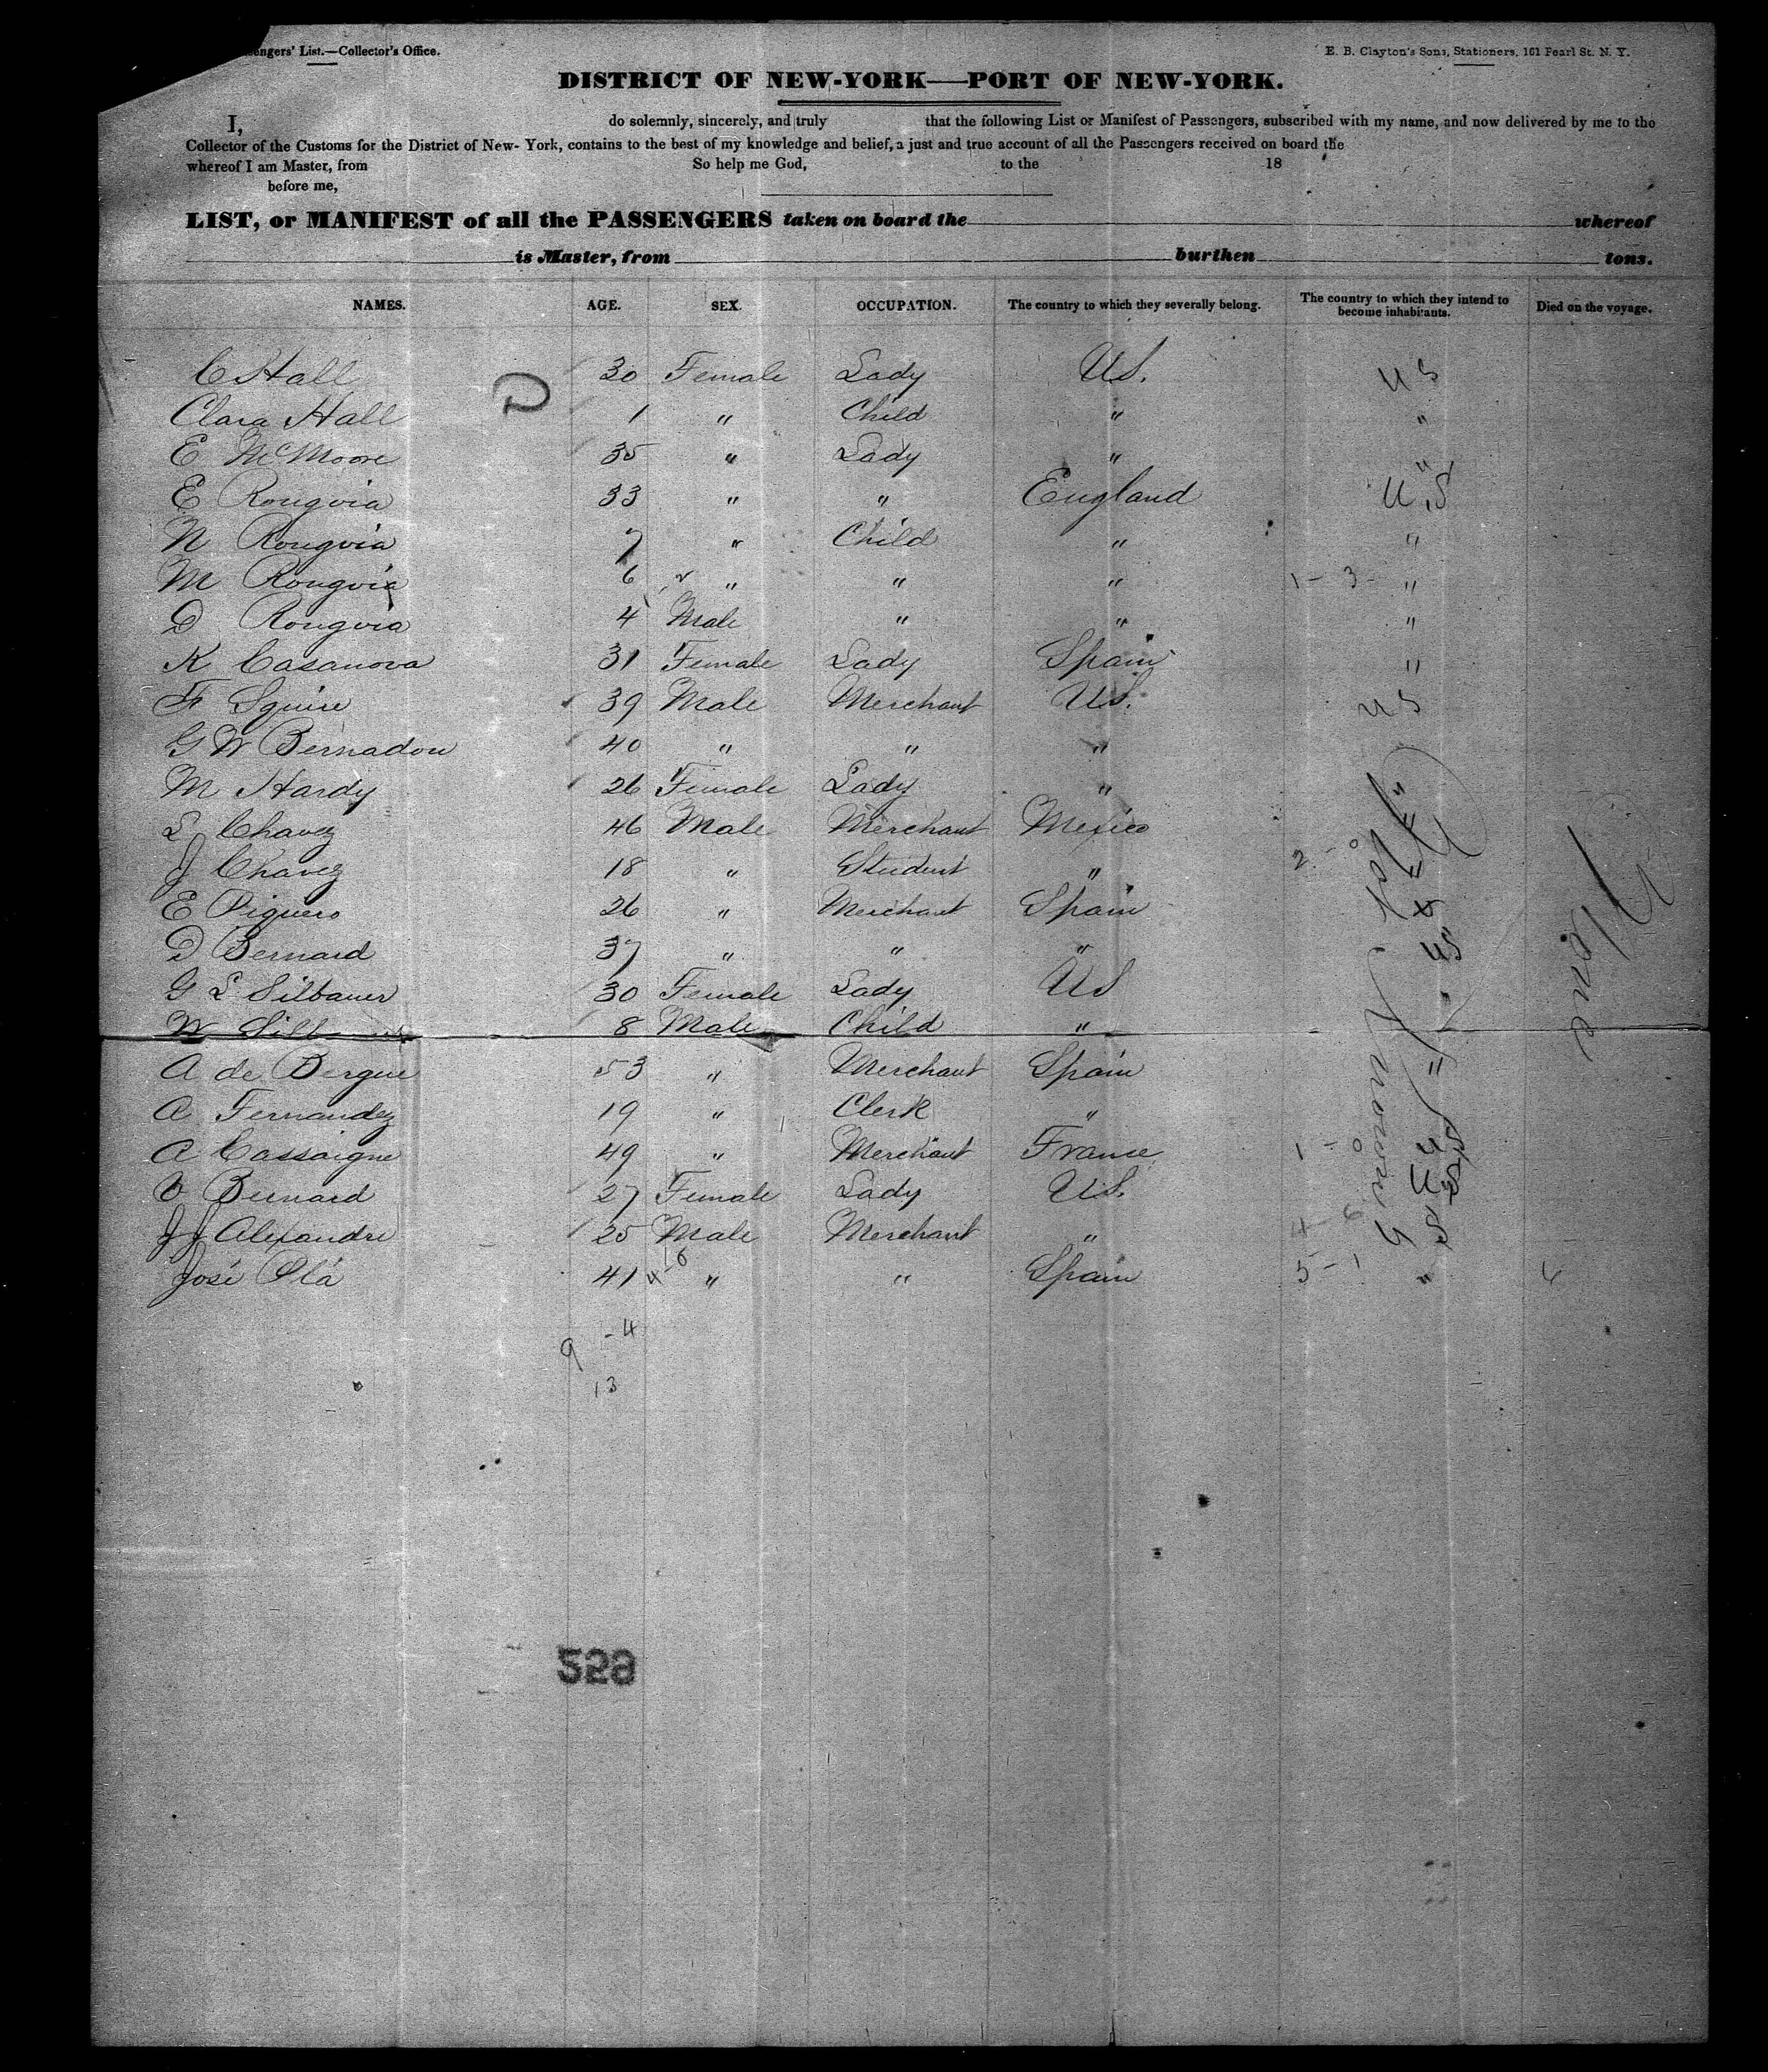 engers' List.—Collector's Office. E. B. Clayton's Sons, Stationers, 161 Pearl St. N. Y.
DISTRICT OF NEW-YORK—PORT OF NEW-YORK.
I, do solemnly, sincerely, and truly that the following List or Manifest of Passengers, subscribed with my name, and now delivered by me to the
Collector of the Customs for the District of New- York, contains to the best of my knowledge and belief, a just and true account of all the Passengers received on board the
whereof I am Master, from So help me God, to the 18
before me,
LIST, or MANIFEST of all the PASSENGERS taken on board the whereof
is Master, from burthen tons.
NAMES. AGE. SEX. OCCUPATION. The country to which they severally belong. The country to which they intend to become inhabitants. Died on the voyage.
C Hall 30 Female Lady U.S. U S
Clara Hall 1 " Child " "
E McMoore 35 " Lady " "
E Rougvia 33 " " England U.S
N Rougvia 7 " Child " "
M Rougvia 6 " " " 1 - 3 - "
D Rougvia 4 Male " " "
K Casanova 31 Female Lady Spain "
F Squire 39 Male Merchant U.S. U S
G W Bernadou 40 " " "
M Hardy 26 Female Lady " "
L Chavez 46 Male Merchant Mexico
J Chavez 18 " Student " 2 - 0
E Piguero 26 " Merchant Spain
D Bernard 37 " " " US
G L Silbauer 30 Female Lady US "
W 8 Male Child "
A de Bergue 53 " Merchant Spain "
A Fernandez 19 " Clerk "
A Cassaigne 49 " Merchant France 1 - 0
V Bernard 27 Female Lady U.S.
J J Alexandre 25 Male Merchant " 4 - 6
José Plá 41 4-6 " " Spain 5 - 1 "
9 - 4
13
529